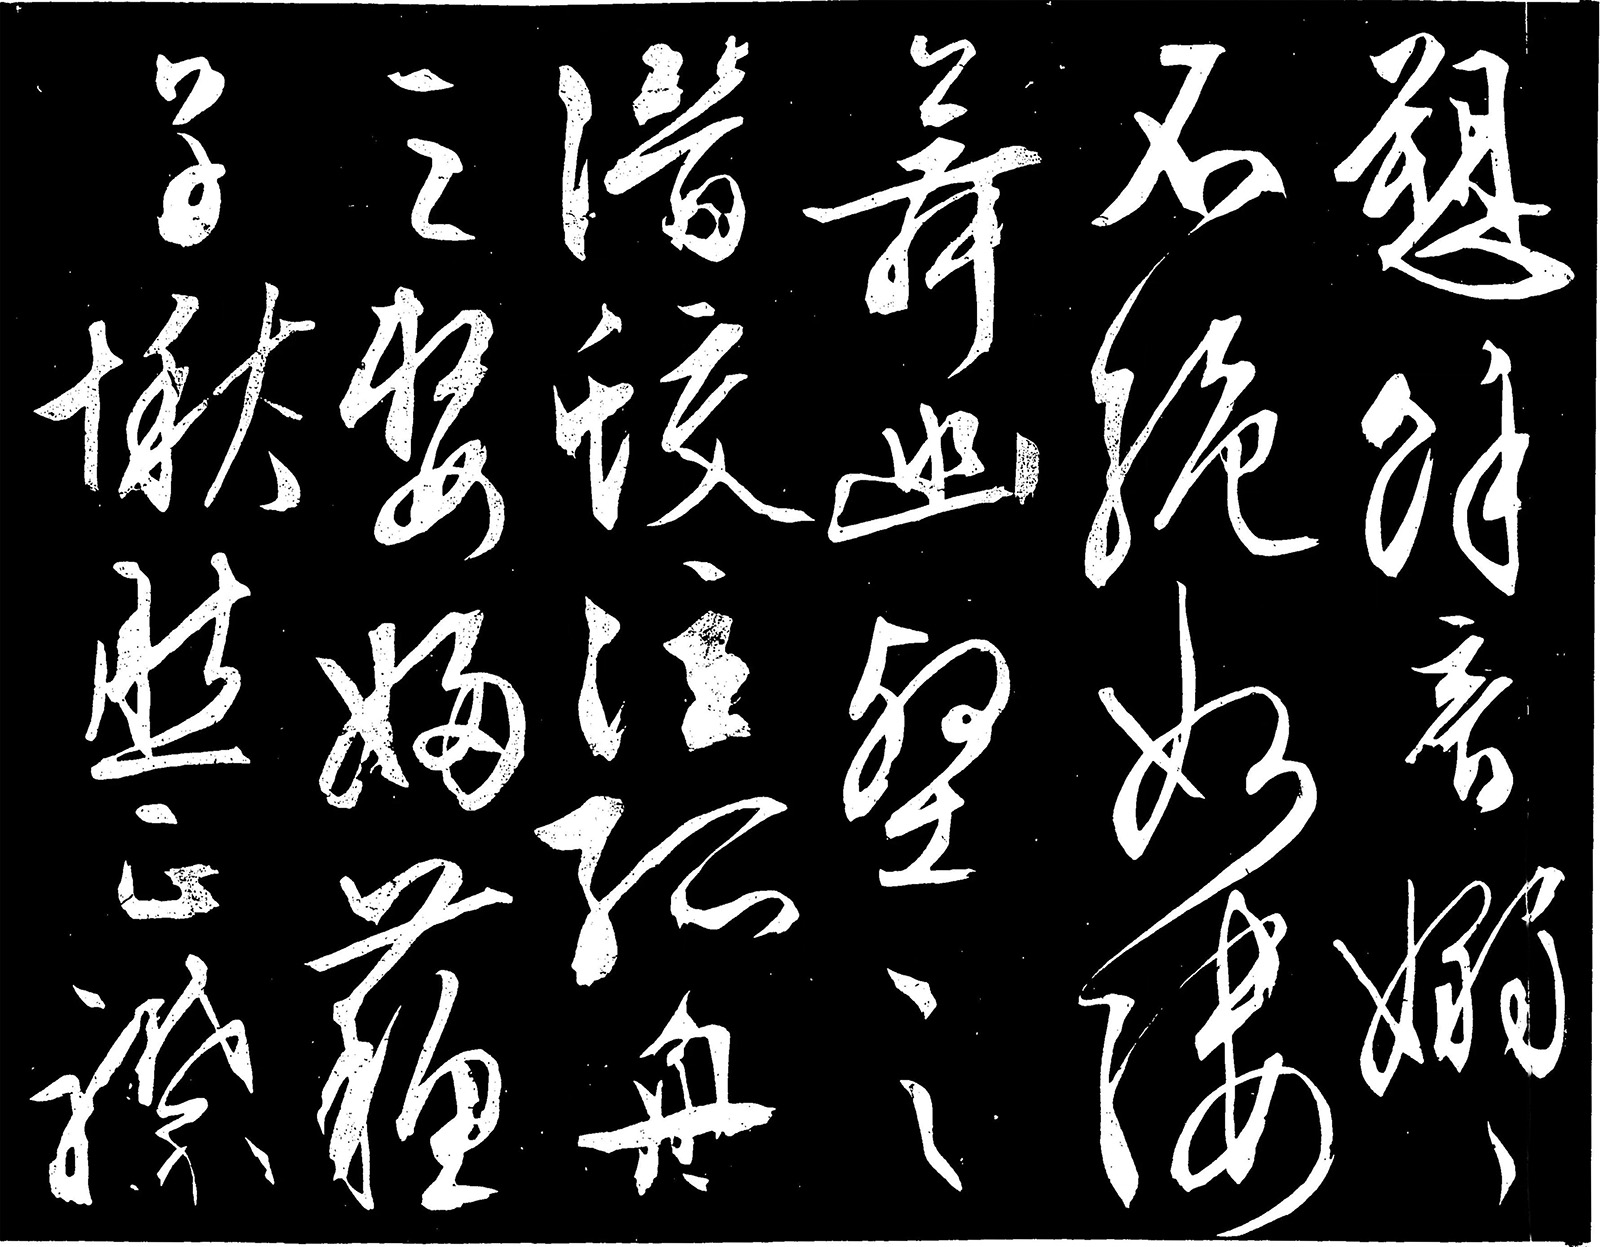 愬餘音嫋〻
不絕如縷
舞幽壑之
潛蛟泣孤舟
之嫠婦蘇
子愀然正襟